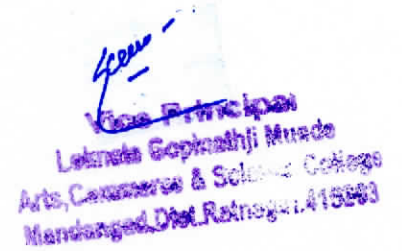 Vice Principal
Loknete Gopinathji Munde
Arts, Commerce & Science College
Mandangad, Dist. Ratnagiri. 415203